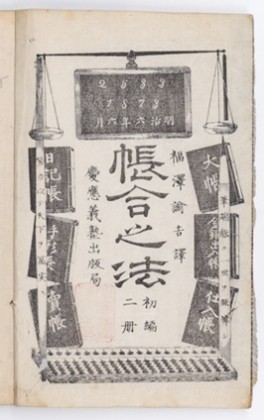 2533
1873
明治六年六月
福澤諭吉譯
帳合之法
初編
二冊
慶應義塾出版局
大帳
金銀出入帳
仕入帳
日記帳
手形帳
賣帳